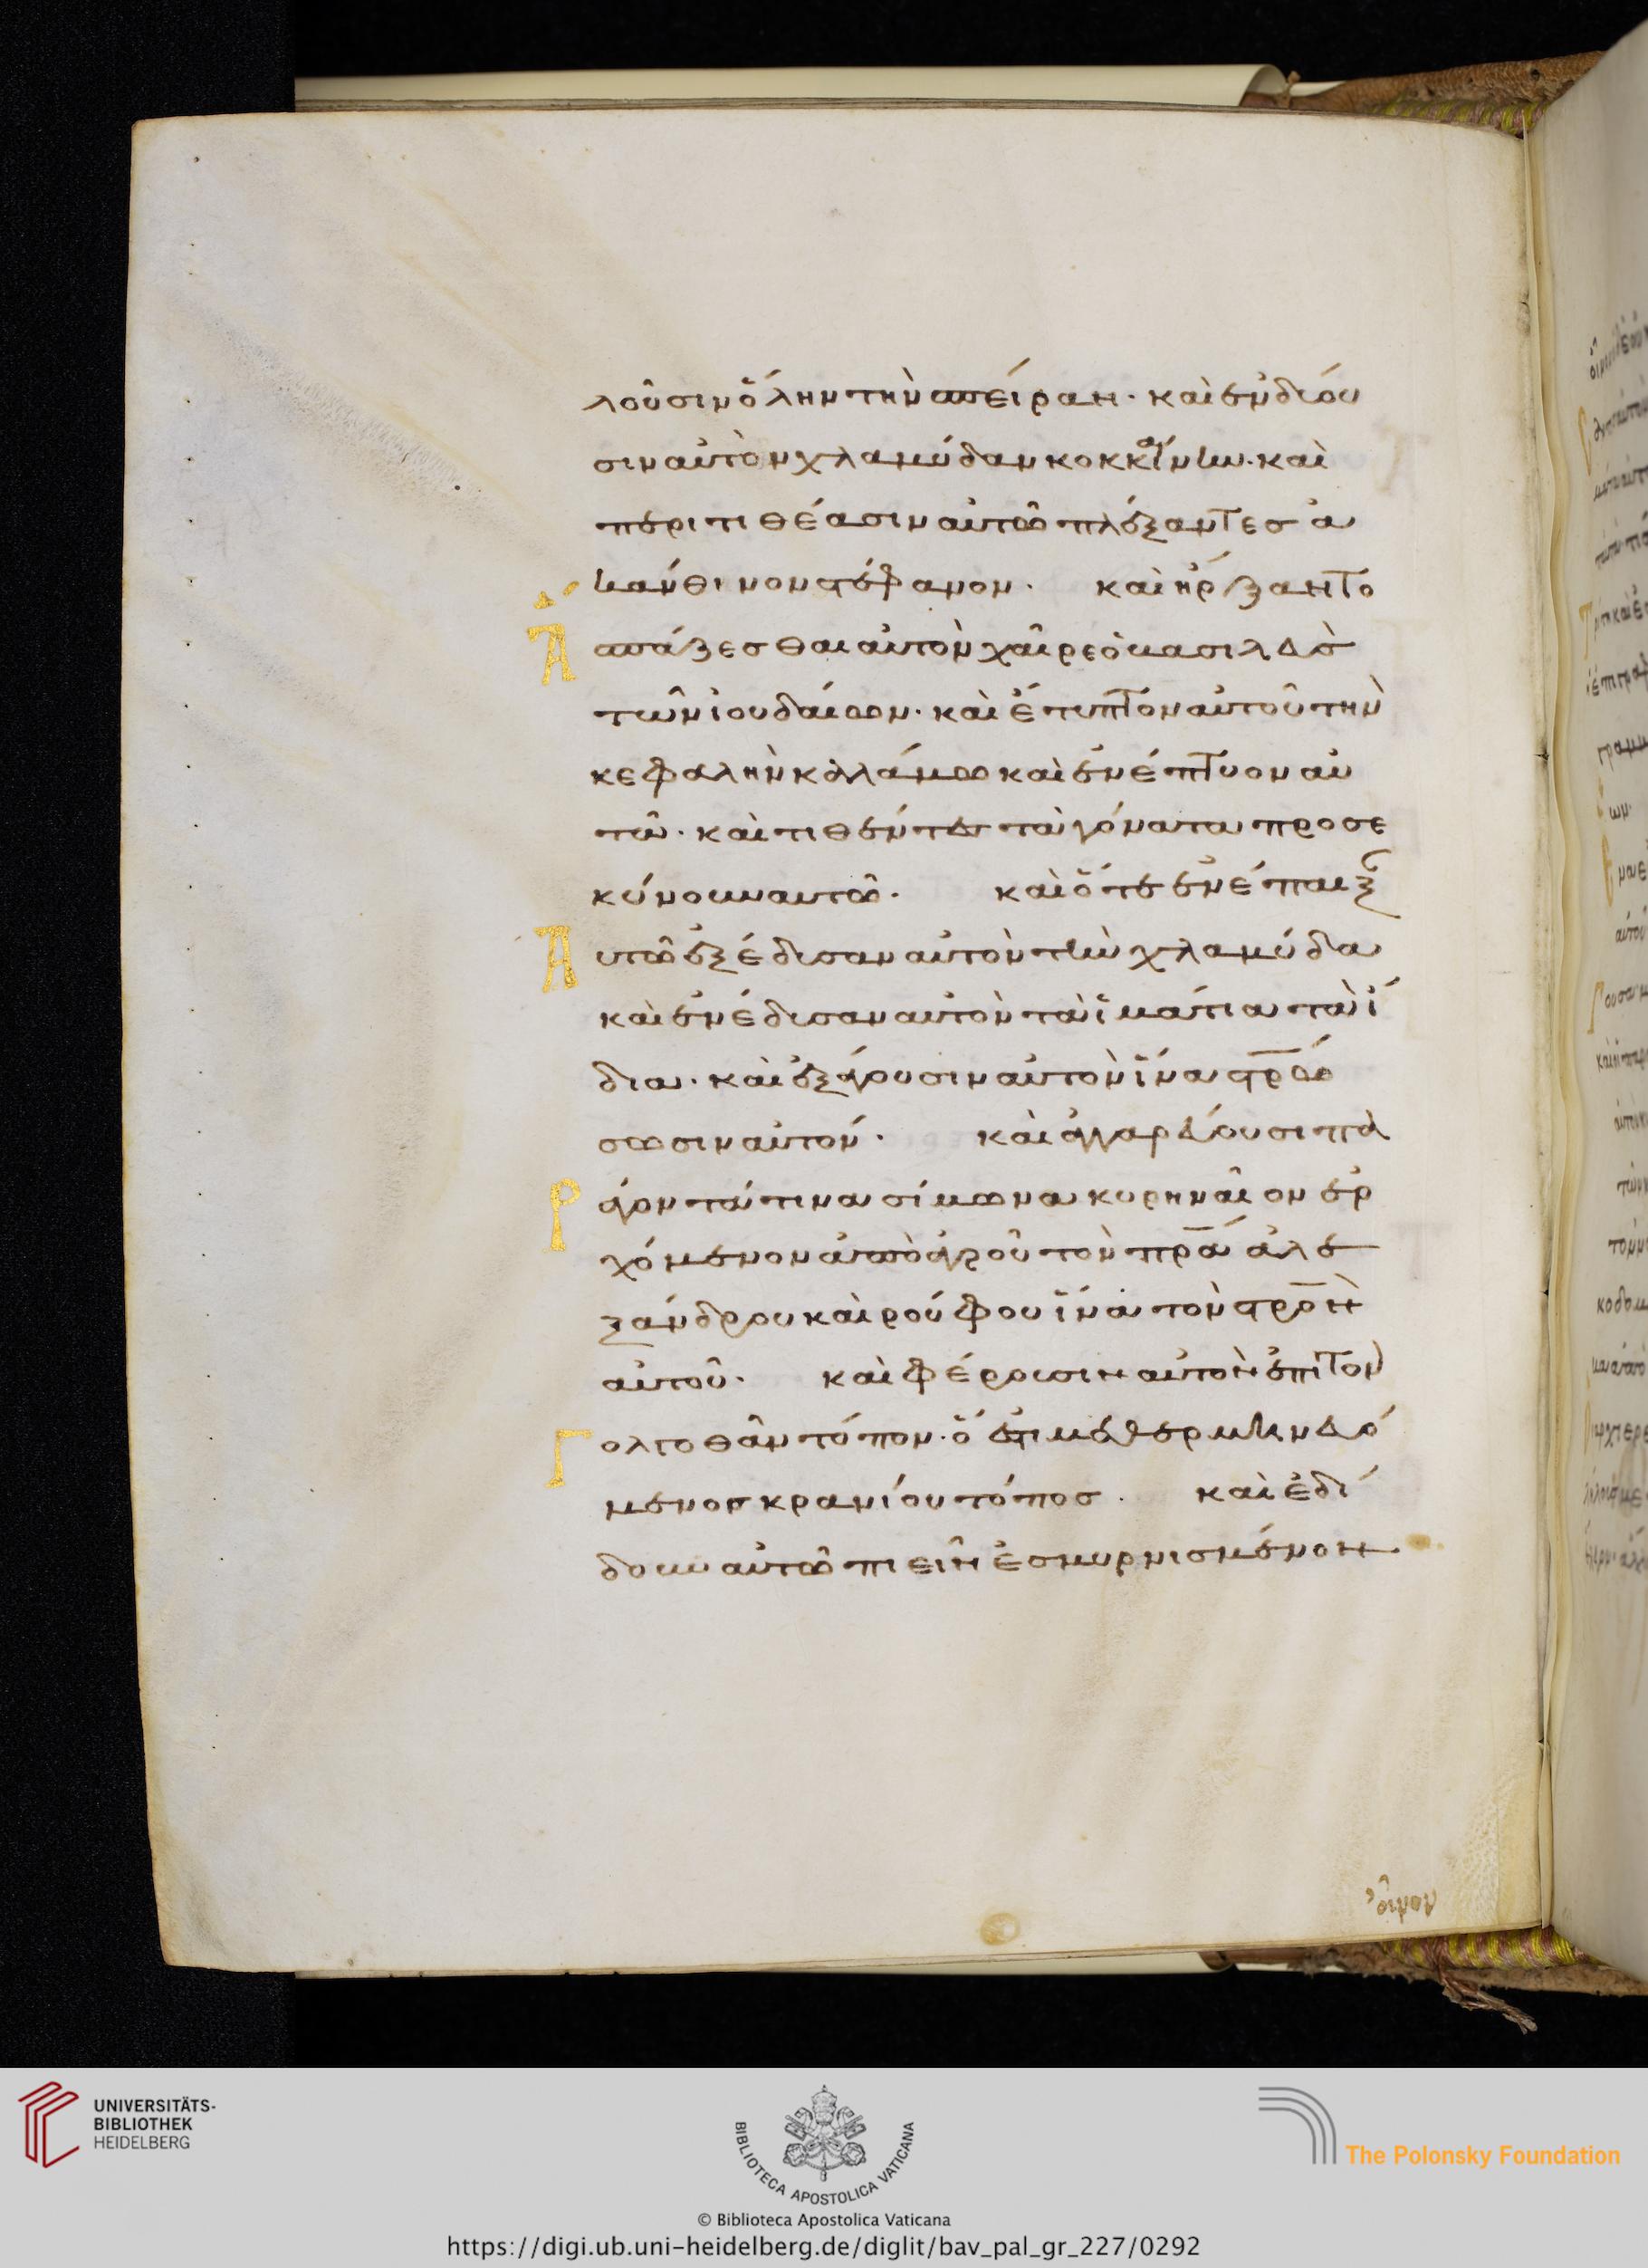 λοῦσιν ὅλην τὴν σπείραν· καὶ ἐνδιδύ
σιν αὐτὸν χλαμύδαν κοκκίνην· καὶ
περιτιθέασιν αὐτῶ πλέξαντες ἀ
κάνθινον στέφανον· καὶ ἤρξαντο
Ἀσπάζεσθαι αὐτὸν χαῖρε ὁ βασιλεὺς
τῶν ἰουδαίων· καὶ ἔτυπτον αὐτοῦ τὴν
κεφαλὴν καλάμω καὶ ἐνέπτυον αὐ
τῶ· καὶ τιθέντες τὰ γόνατα προσε
κύνουν αὐτῶ· καὶ ὅτε ἐνέπαιξ
Αὐτῶ ἐξέδυσαν αὐτὸν τὴν χλαμύδα
καὶ ἐνέδυσαν αὐτὸν τὰ ἱμάτια τὰ ἴ
δια· καὶ ἐξάγουσιν αὐτὸν ἵνα στρώ
σωσιν αὐτόν· καὶ ἀγγαρεύουσι πα
Ράγοντά τινα σίμωνα κυρηναῖον ἐρ
χόμενον ἀπὸ ἀγροῦ τὸν πρα ἀλε
ξάνδρου καὶ ρούφου ἵνα τὸν στρον
αὐτοῦ· καὶ φέρουσιν αὐτὸν ἐπὶ τὸν
Γολγοθᾶν τόπον· ὅ ἐστι μεθερμηνευό
μενος κρανίου τόπος· καὶ ἐδί
δουν αὐτῶ πιεῖν ἐσμυρνισμένον
UNIVERSITÄTS-
BIBLIOTHEK
HEIDELBERG
BIBLIOTECA APOSTOLICA VATICANA
The Polonsky Foundation
© Biblioteca Apostolica Vaticana
https://digi.ub.uni-heidelberg.de/diglit/bav_pal_gr_227/0292